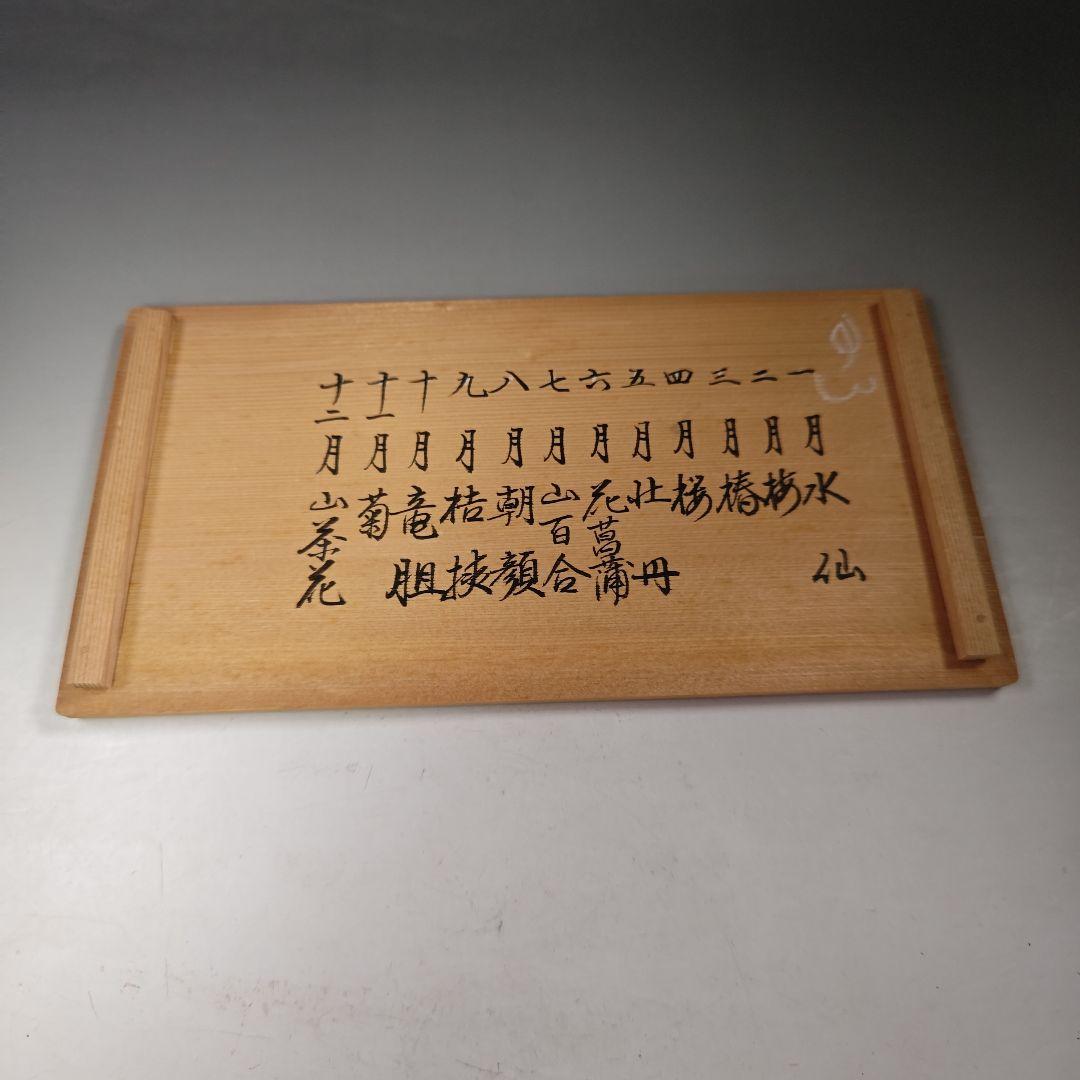 一月 水仙
二月 梅
三月 椿
四月 桜
五月 牡丹
六月 花菖蒲
七月 山百合
八月 朝顔
九月 桔梗
十月 竜胆
十一月 菊
十二月 山茶花